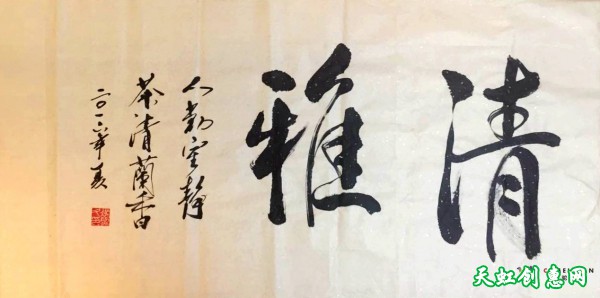 清雅
人勤室静
茶清蘭香
二〇一六年夏
天虹创惠网